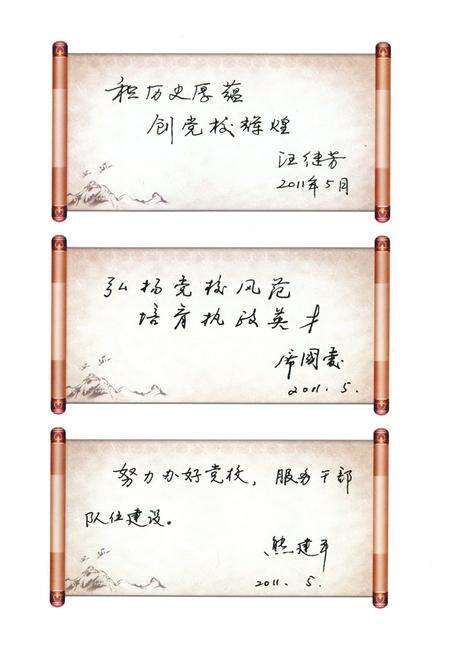 积历史厚蕴
创党校辉煌
汪继芳
2011年5月
弘扬党校风范
培育执政英才
席国
2011.5.
努力办好党校，服务干部
队伍建设。
熊建平
2011.5.